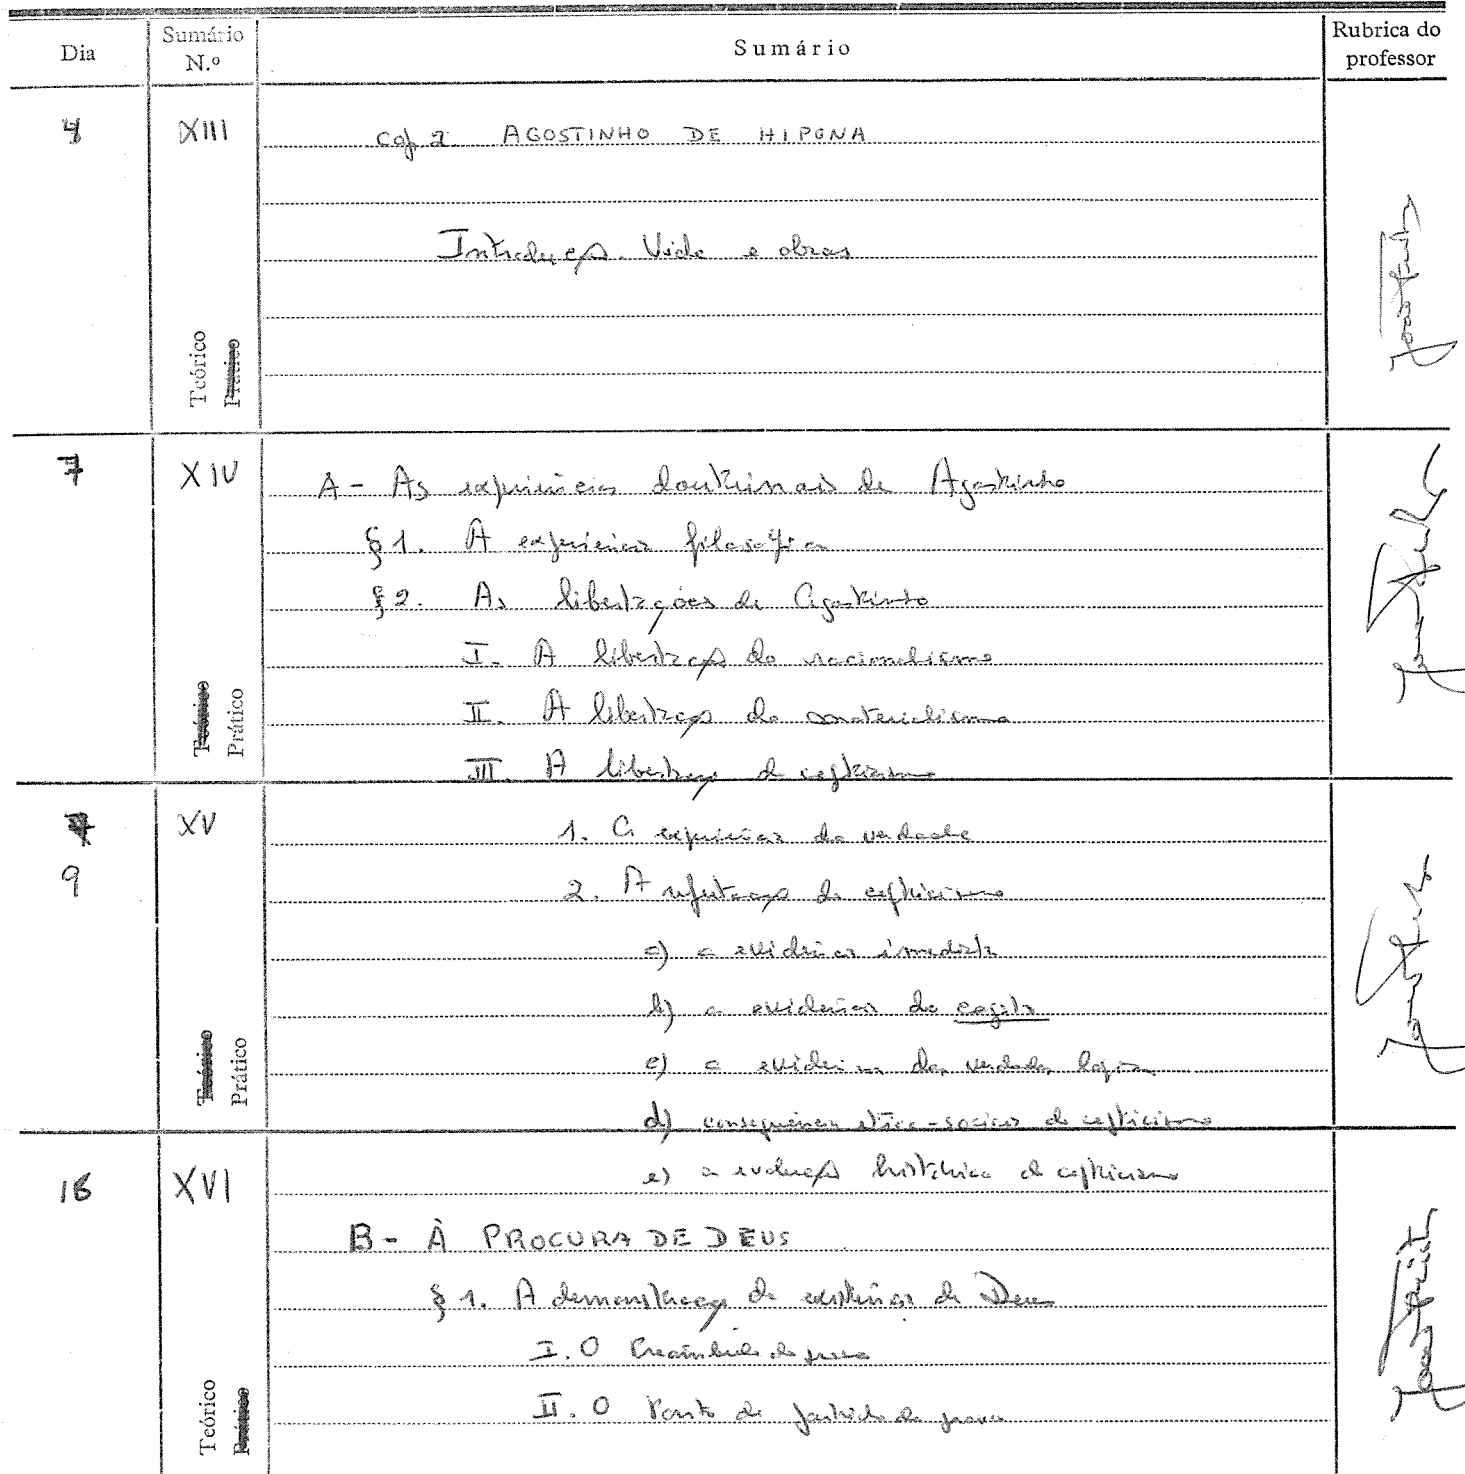 Dia Sumário N.º Sumário Rubrica do professor
4 XIII Cap. 2. AGOSTINHO DE HIPONA
Introdução. Vida e obras
Teórico Prático
7 XIV A - As experiências doutrinais de Agostinho
§ 1. A experiência filosófica
§ 2. As libertações de Agostinho
I. A libertação do racionalismo
II. A libertação do materialismo
Teórico Prático
III. A libertação do cepticismo
XV 1. A experiência da verdade
9 2. A refutação do cepticismo
a) a evidência imediata
b) a evidência do cogito
c) a evidência das verdades lógicas
Teórico Prático
d) consequências ético-sociais do cepticismo
e) a evolução histórica do cepticismo
16 XVI
B - À PROCURA DE DEUS
§ 1. A demonstração da existência de Deus
I. O Preâmbulo da prova
II. O Ponto de partida da prova
Teórico Prático